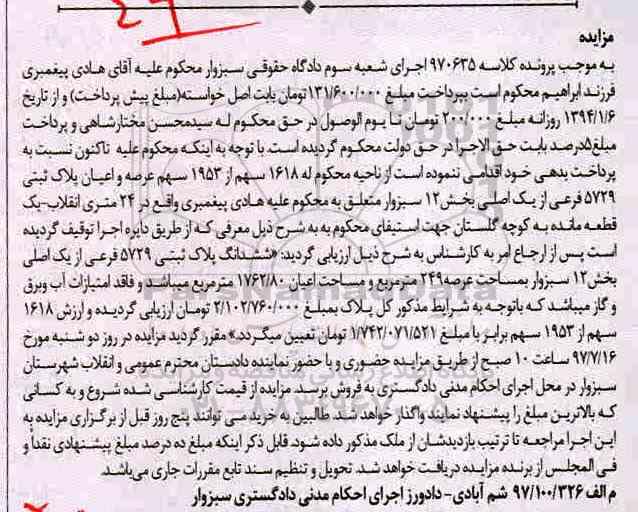 29
مزایده
به موجب پرونده کلاسه ۹۷۰۶۳۵ اجرای شعبه سوم دادگاه حقوقی سبزوار محکوم علیه آقای هادی پیغمبری
فرزند ابراهیم محکوم است بپرداخت مبلغ ۱۳۱/۶۰۰/۰۰۰تومان بابت اصل خواسته(مبلغ پیش پرداخت) و از تاریخ
۱۳۹۴/۱/۶ روزانه مبلغ ۲۰۰/۰۰۰ تومان تا یوم الوصول در حق محکوم له سیدمحسن مختارشاهی و پرداخت
مبلغ۵درصد بابت حق الاجرا در حق دولت محکوم گردیده است. با توجه به اینکه محکوم علیه تاکنون نسبت به
پرداخت بدهی خود اقدامی ننموده است از ناحیه محکوم له ۱۶۱۸ سهم از ۱۹۵۳ سهم عرصه و اعیان پلاک ثبتی
۵۷۲۹ فرعی از یک اصلی بخش۱۲ سبزوار متعلق به محکوم علیه هادی پیغمبری واقع در ۲۴ متری انقلاب-یک
قطعه مانده به کوچه گلستان جهت استیفای محکوم به به شرح ذیل معرفی که از طریق دایره اجرا توقیف گردیده
است پس از ارجاع امر به کارشناس به شرح ذیل ارزیابی گردید: «ششدانگ پلاک ثبتی ۵۷۲۹ فرعی از یک اصلی
بخش۱۲ سبزوار بمساحت عرصه۲۴۹ مترمربع و مساحت اعیان ۱۷۶۲/۸۰ مترمربع میباشد و فاقد امتیازات آب وبرق
و گاز میباشد که باتوجه به شرایط مذکور کل پلاک بمبلغ ۲/۱۰۲/۷۶۰/۰۰۰ تومان ارزیابی گردیده و ارزش ۱۶۱۸
سهم از ۱۹۵۳ سهم برابر با مبلغ ۱/۷۴۲/۰۷۱/۵۲۱ تومان تعیین میگردد.» مقرر گردید مزایده در روز دو شنبه مورخ
۹۷/۷/۱۶ ساعت ۱۰ صبح از طریق مزایده حضوری و با حضور نماینده دادستان محترم عمومی و انقلاب شهرستان
سبزوار در محل اجرای احکام مدنی دادگستری به فروش برسد. مزایده از قیمت کارشناسی شده شروع و به کسانی
که بالاترین مبلغ را پیشنهاد نمایند واگذار خواهد شد. طالبین به خرید می توانند پنج روز قبل از برگزاری مزایده به
این اجرا مراجعه تا ترتیب بازدیدشان از ملک مذکور داده شود. قابل ذکر اینکه مبلغ ده درصد مبلغ پیشنهادی نقداً و
فی المجلس از برنده مزایده دریافت خواهد شد. تحویل و تنظیم سند تابع مقررات جاری می‌باشد.
م الف ۹۷/۱۰۰/۳۲۶ شم آبادی- دادورز اجرای احکام مدنی دادگستری سبزوار